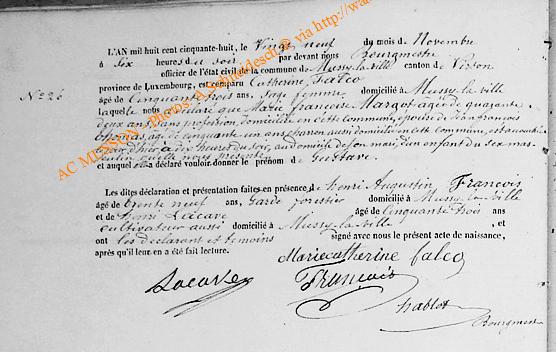 L'AN mil huit cent cinquante-huit, le Vingt neuf du mois de Novembre
à Six heures du soir par devant nous Bourgmestre
officier de l'état civil de la commune de Mussy-la-ville canton de Virton
province de Luxembourg, est comparu Catherine Falco
Nº 26
âgé de Cinquante trois ans, Sage femme domicilié à Mussy-la-ville
laquelle nous a déclaré que Marie françoise Margot agée de quarante
deux ans, Sans profession, domiciliée en cette commune, épouse de Jean françois
Thomas, agé de cinquante un ans, charon aussi domicilié en cette commune, est accouchée
d'hier à dix heures du soir, au domicile de son mari, d'un enfant du Sex mas-
culin qu'elle nous présente
et auquel elle a déclaré vouloir donner le prénom de Gustave.
Les dites déclaration et présentation faites en présence de henri Augustin François
âgé de trente neuf ans, Garde forestier domicilié à Mussy-la-Ville
et de henri Lacave âgé de Cinquante trois ans
cultivateur aussi domicilié à Mussy-la-ville, et
ont les déclarant et témoins signé avec nous le présent acte de naissance,
après qu'il leur en a été fait lecture.
Marie catherine falco
Lacave François
hablot
Bourgmest
AC MUSSON - photos: A. Schneidesch@ via http://www